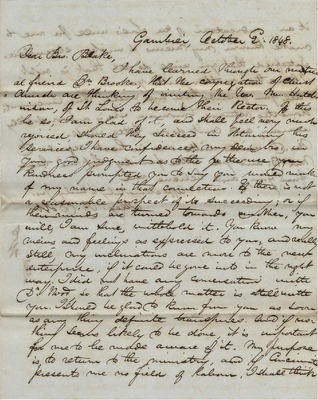 Gambier, October 2d. 1848.
Dear Bro. Blake,
I have learned through our mutual
friend Bro Brooke, that the congregation of Christ
Church are thinking of inviting the Rev. Mr.
of St Louis to become their Rector. If this
be so, I am glad of it, and shall feel very much
rejoiced should they succeed in obtaining his
services. I have confidence, my dear bro. in
your good judgment as to the use
kindness prompted you to say you would make
of my name in that connection. If there is not
a reasonable prospect of its succeeding; or if
their minds are turned towards another, you
will, I am sure, withhold it. You know my
views and feelings as expressed to you, and
still my inclinations are more to the new
enterprise, if it could be gone into in the right
way. I did not have any conversation with
so that the whole matter is still with
you. I should be glad to know from you as soon
as any thing definite transpires. And if no-
thing seems likely to be done, it is important
for me to be made aware of it. My purpose
is to return to the ministry, and if Cincinnati
presents me no field of labour, I shall think